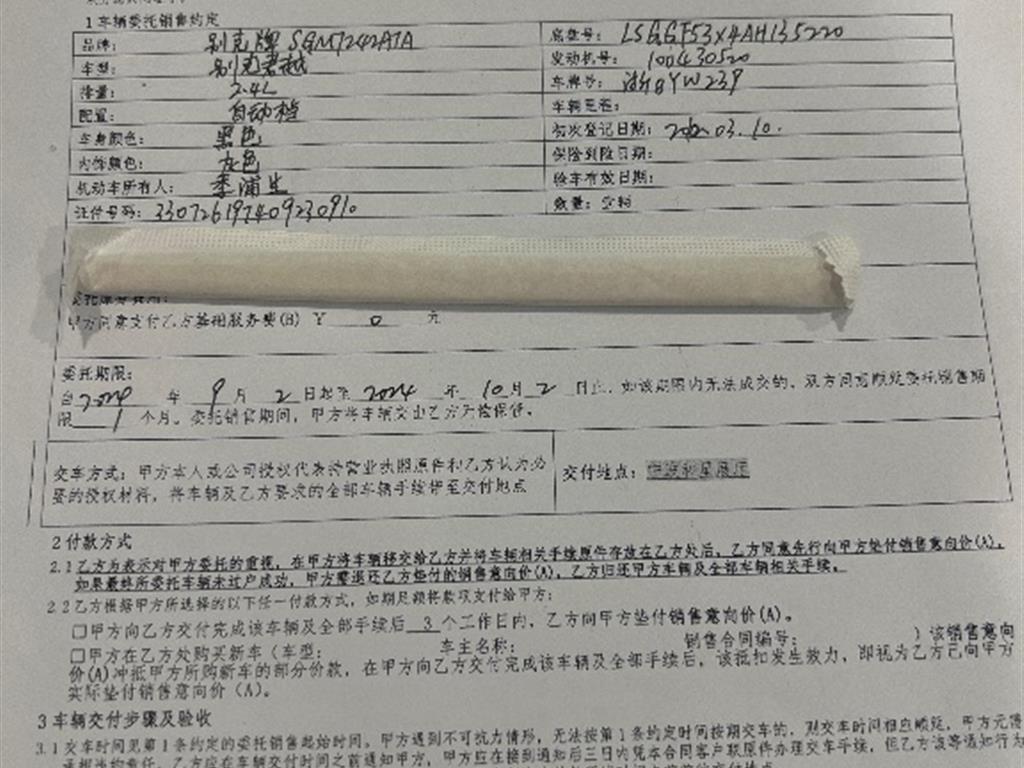 1车辆委托销售约定
品牌: 别克牌 SGM7242ATA 底盘号: LSGGF53X4AH135220
车型: 别克君越 发动机号: 100430520
排量: 2.4L 车牌号: 浙BYW239
配置: 自动档 车辆里程:
车身颜色: 黑色 初次登记日期: 03.10.
内饰颜色: 灰色 保险到险日期:
机动车所有人: 季浦生 验车有效日期:
证件号码: 330726197409230910 数量:
甲方同意支付乙方基础服务费(B) ¥ 0 元
委托期限:
自2024 年 9 月 2 日起至 2024 年 10 月 2 日止, 如该期限内无法成交的, 双方同意顺延委托销售期
限 1 个月。委托销售期间, 甲方将车辆交由乙方无偿保管。
交车方式: 甲方本人或公司授权代表持营业执照原件和乙方认为必 交付地点:
要的授权材料, 将车辆及乙方要求的全部车辆手续带至交付地点
2付款方式
2.1乙方为表示对甲方委托的重视, 在甲方将车辆移交给乙方并将车辆相关手续原件存放在乙方处后, 乙方同意先行向甲方垫付销售意向价(A),
如果最终所委托车辆未过户成功, 甲方需退还乙方垫付的销售意向价(A), 乙方归还甲方车辆及全部车辆相关手续。
2.2乙方根据甲方所选择的以下任一付款方式, 如期足额将款项支付给甲方:
□甲方向乙方交付完成该车辆及全部手续后 3 个工作日内, 乙方向甲方垫付销售意向价(A)。
□甲方在乙方处购买新车(车型: 车主名称: 销售合同编号: )该销售意向
价(A)冲抵甲方所购新车的部分价款, 在甲方向乙方交付完成该车辆及全部手续后, 该抵扣发生效力, 即视为乙方已向甲方
实际垫付销售意向价(A)。
3车辆交付步骤及验收
3.1交车时间见第1条约定的委托销售起始时间。甲方遇到不可抗力情形, 无法按第1条约定时间按期交车的, 则交车时间相应顺延, 甲方无需
承担违约责任。乙方应在车辆交付时间之前通知甲方, 甲方应在接到通知后三日内凭本合同客户联原件办理交车手续, 但乙方该等通知行为